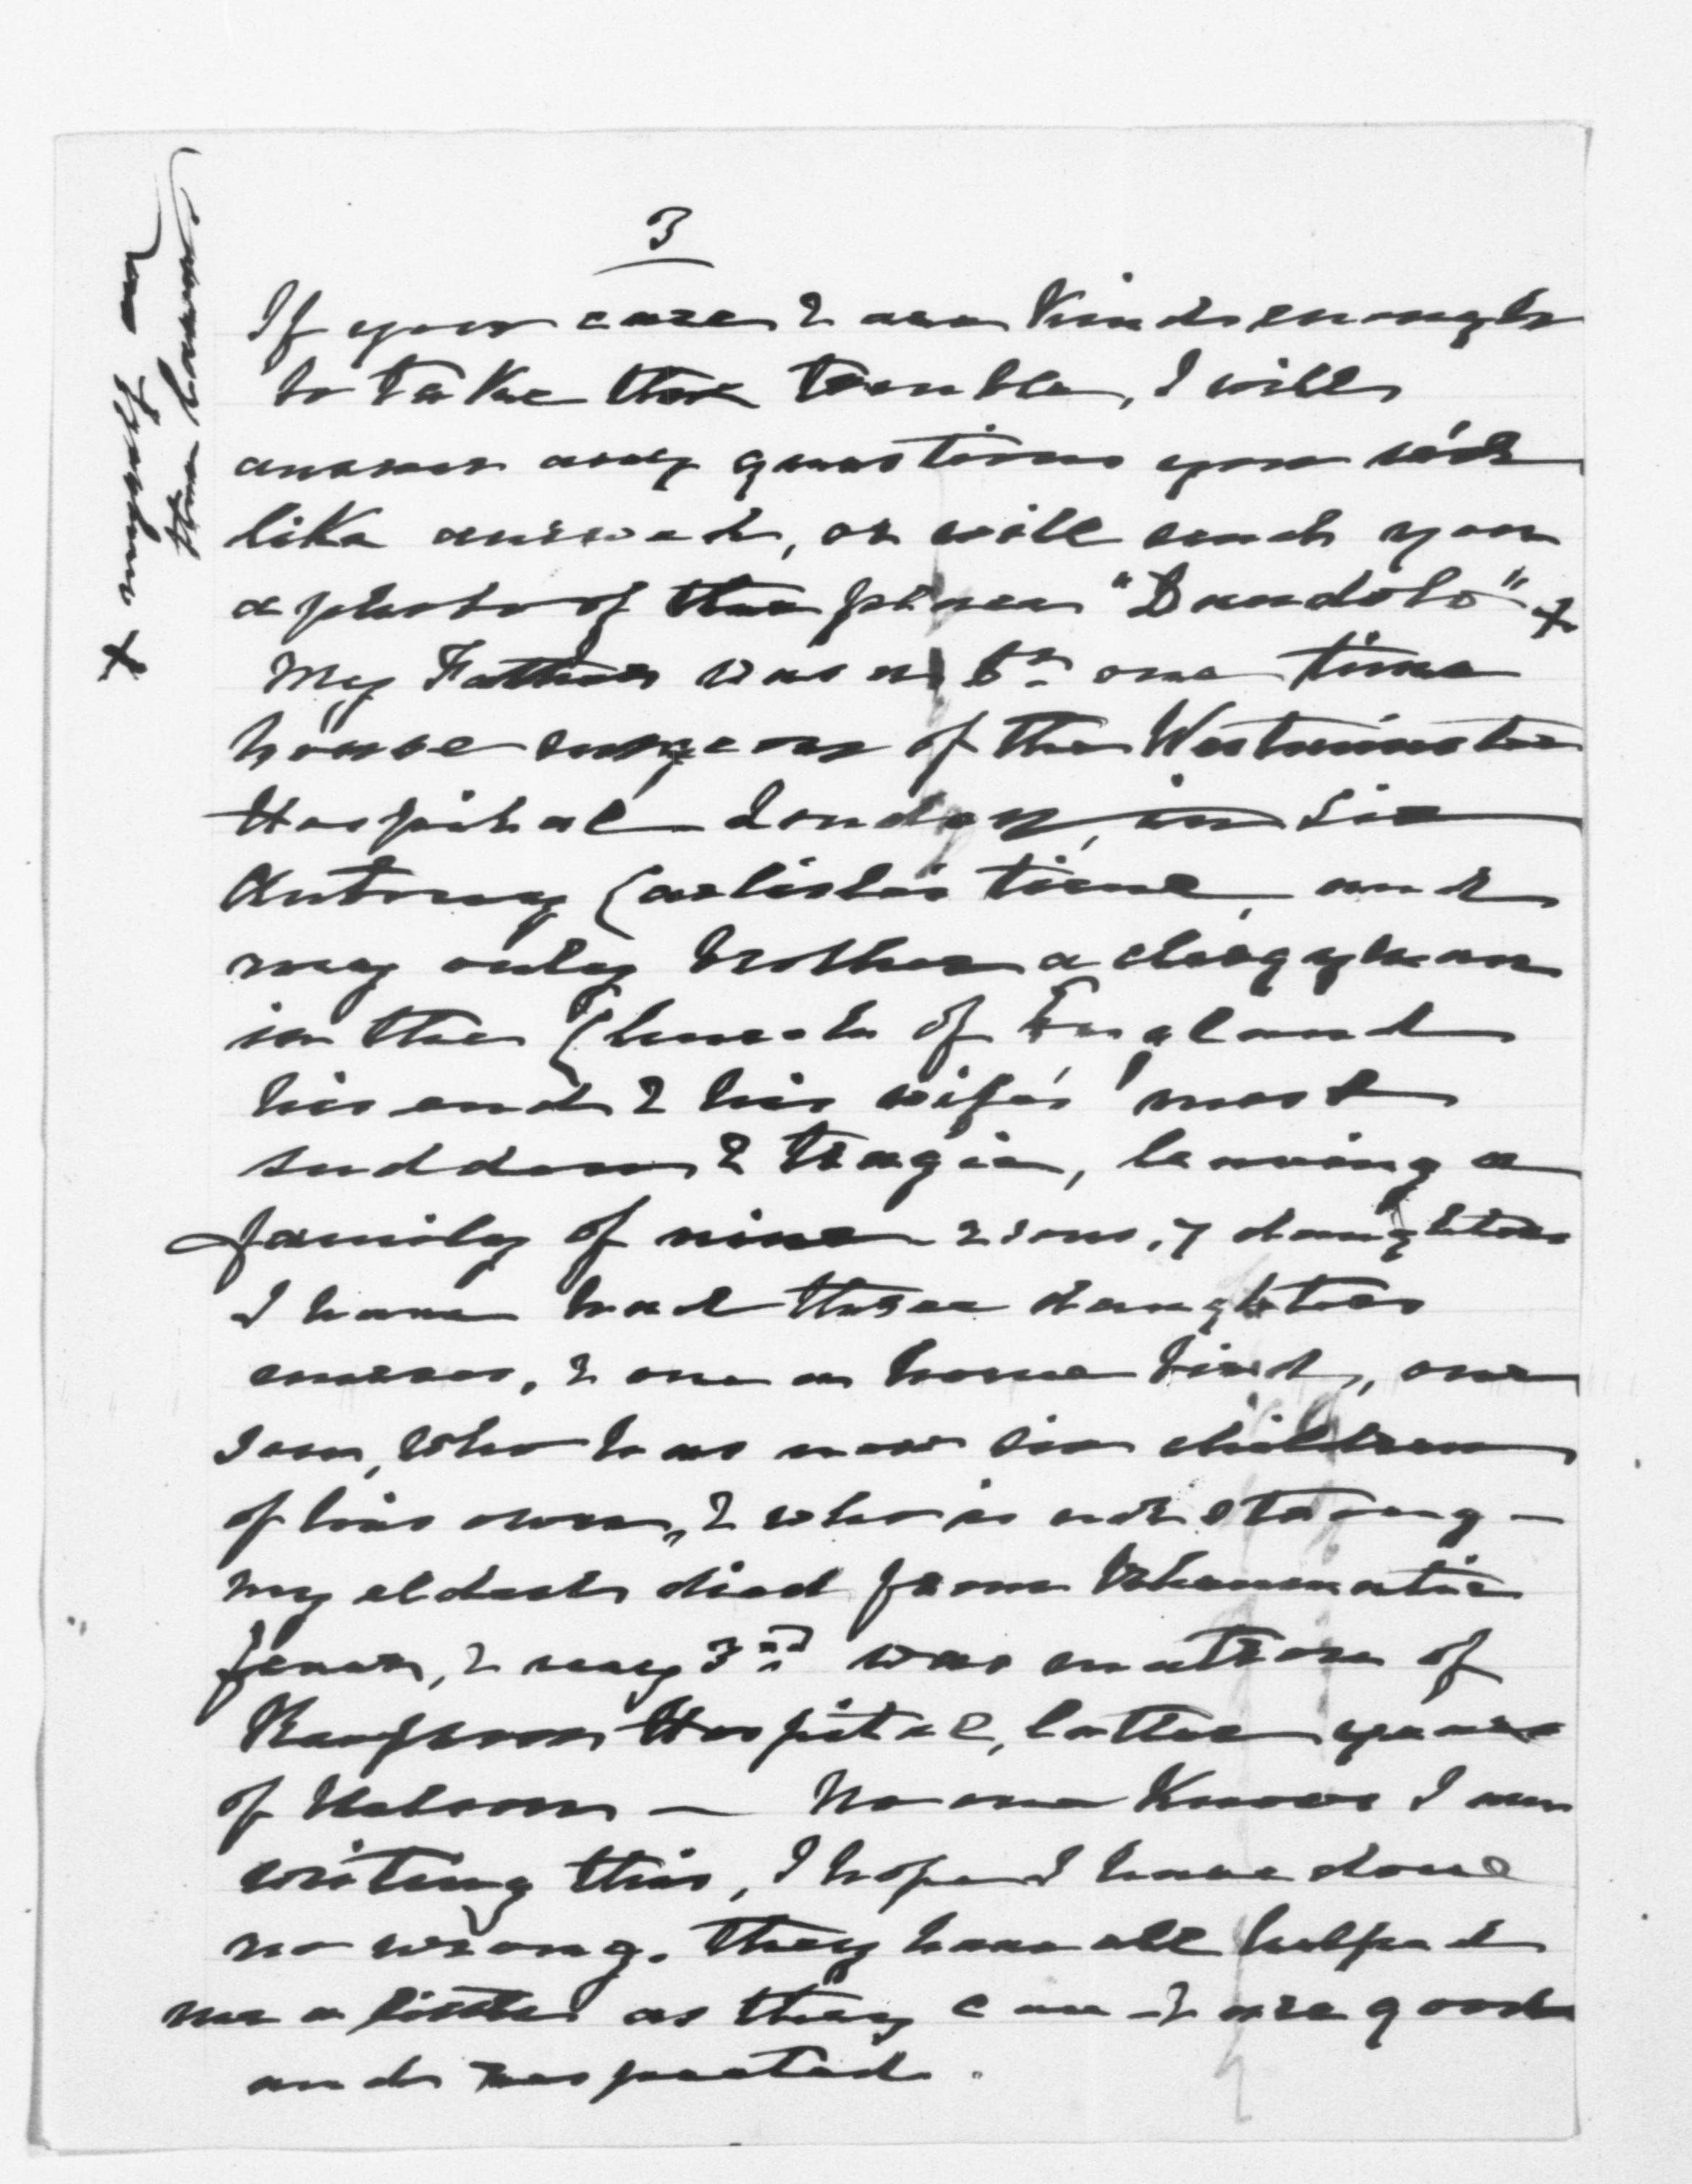 3
If you care & are kind enough
to take the trouble, I will
answer any questions you wd
like answed, or will send you
a photo of the place "Dandolo" x
My Father was a Dr one time
house surgeon of the Westminster
Hospital London, in Sir
Antony Carlisles time, and
my only brother a clergyman
in the Church of England
his end & his wife's most
sudden & tragic, leaving a
family of nine 2 sons, 7 daughters
I have had three daughters
nurses, & one a home bird, one
son, who has now six children
of his own, & who is not strong —
my eldest died from Rheumatic
fever, & my 3rd was matron of
Hospital, latter years
of Nelson — No one knows I am
writing this, I hope I have done
no wrong. They have all helped
me a little as they can & are good
and respected.
x myself on
the